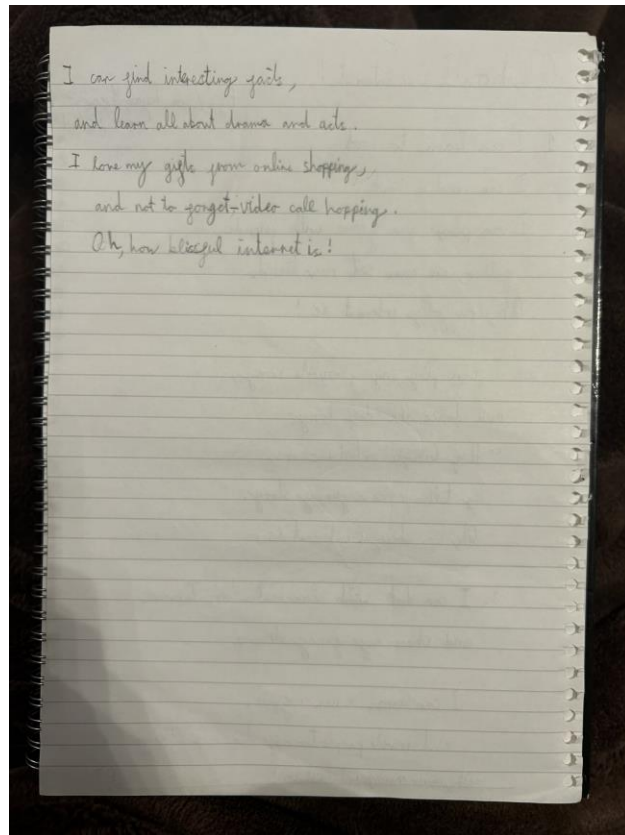 I can find interesting facts,
and learn all about drama and acts.
I love my gifts from online shopping,
and not to forget-video call hopping.
Oh, how blissful internet is!